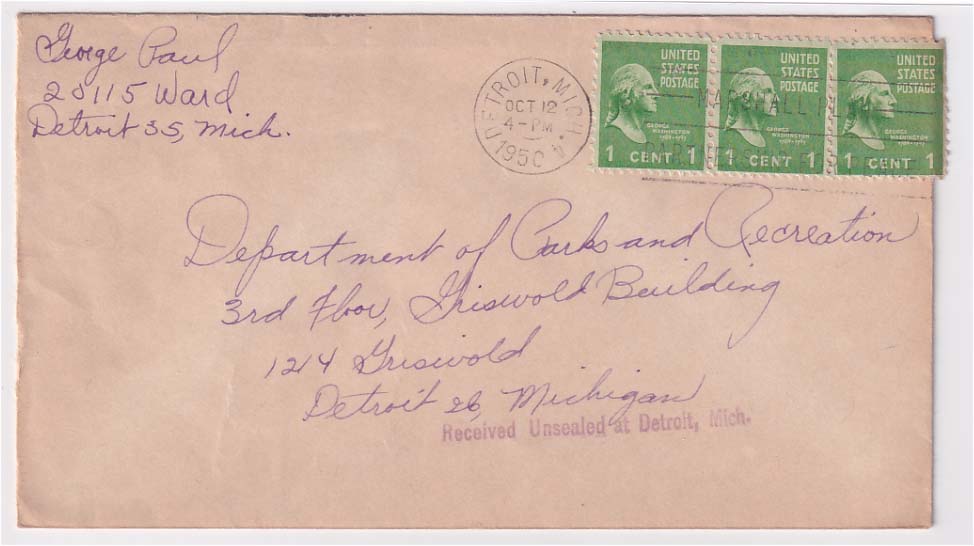 George Paul
20115 Ward
Detroit 35, Mich.
DETROIT, MICH. 4
OCT 12
4-PM
1950
UNITED STATES POSTAGE
GEORGE WASHINGTON
1 CENT 1
UNITED STATES POSTAGE
GEORGE WASHINGTON
1 CENT 1
UNITED STATES POSTAGE
GEORGE WASHINGTON
1 CENT 1
MARSHALL
Department of Parks and Recreation
3rd Floor, Griswold Building
1214 Griswold
Detroit 26, Michigan
Received Unsealed at Detroit, Mich.